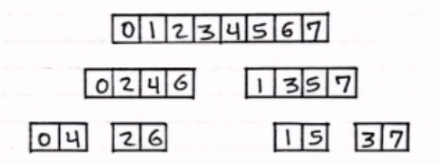 0 1 2 3 4 5 6 7
0 2 4 6 1 3 5 7
0 4 2 6 1 5 3 7